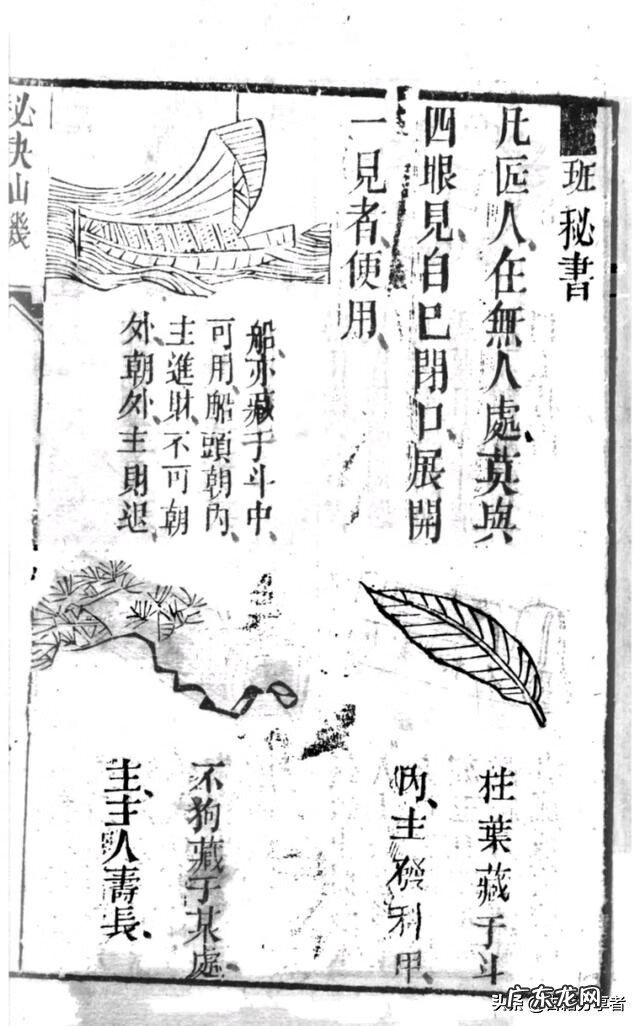 班秘書
凡匠人在無人處、莫與
四眼見、自己閉口、展開
一見者、便用、
船亦藏于斗中、
可用、船頭朝內、
主進財、不可朝
外、朝外、主財退、
桂葉藏于斗
內、主發科甲、
不狗藏于某處、
主、主人壽長、
秘訣仙機
广东龙网